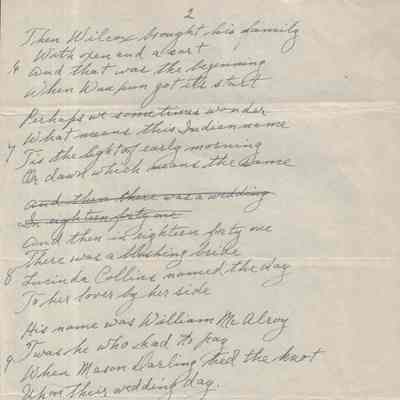 2
Then Wilcox brought his family
With oxen and a cart
6 And that was the beginning
When Waupun got its start
Perhaps we sometimes wonder
What means this Indian name
7 Tis the light of early morning
Or dawn which means the same
And then there was a wedding
In eighteen forty one
And then in eighteen forty one
There was a blushing bride
8 Lucinda Collins named the day
To her lover by her side
His name was William McAlroy
9 Twas he who had to pay
When Mason Darling tied the knot
Upon their wedding day.